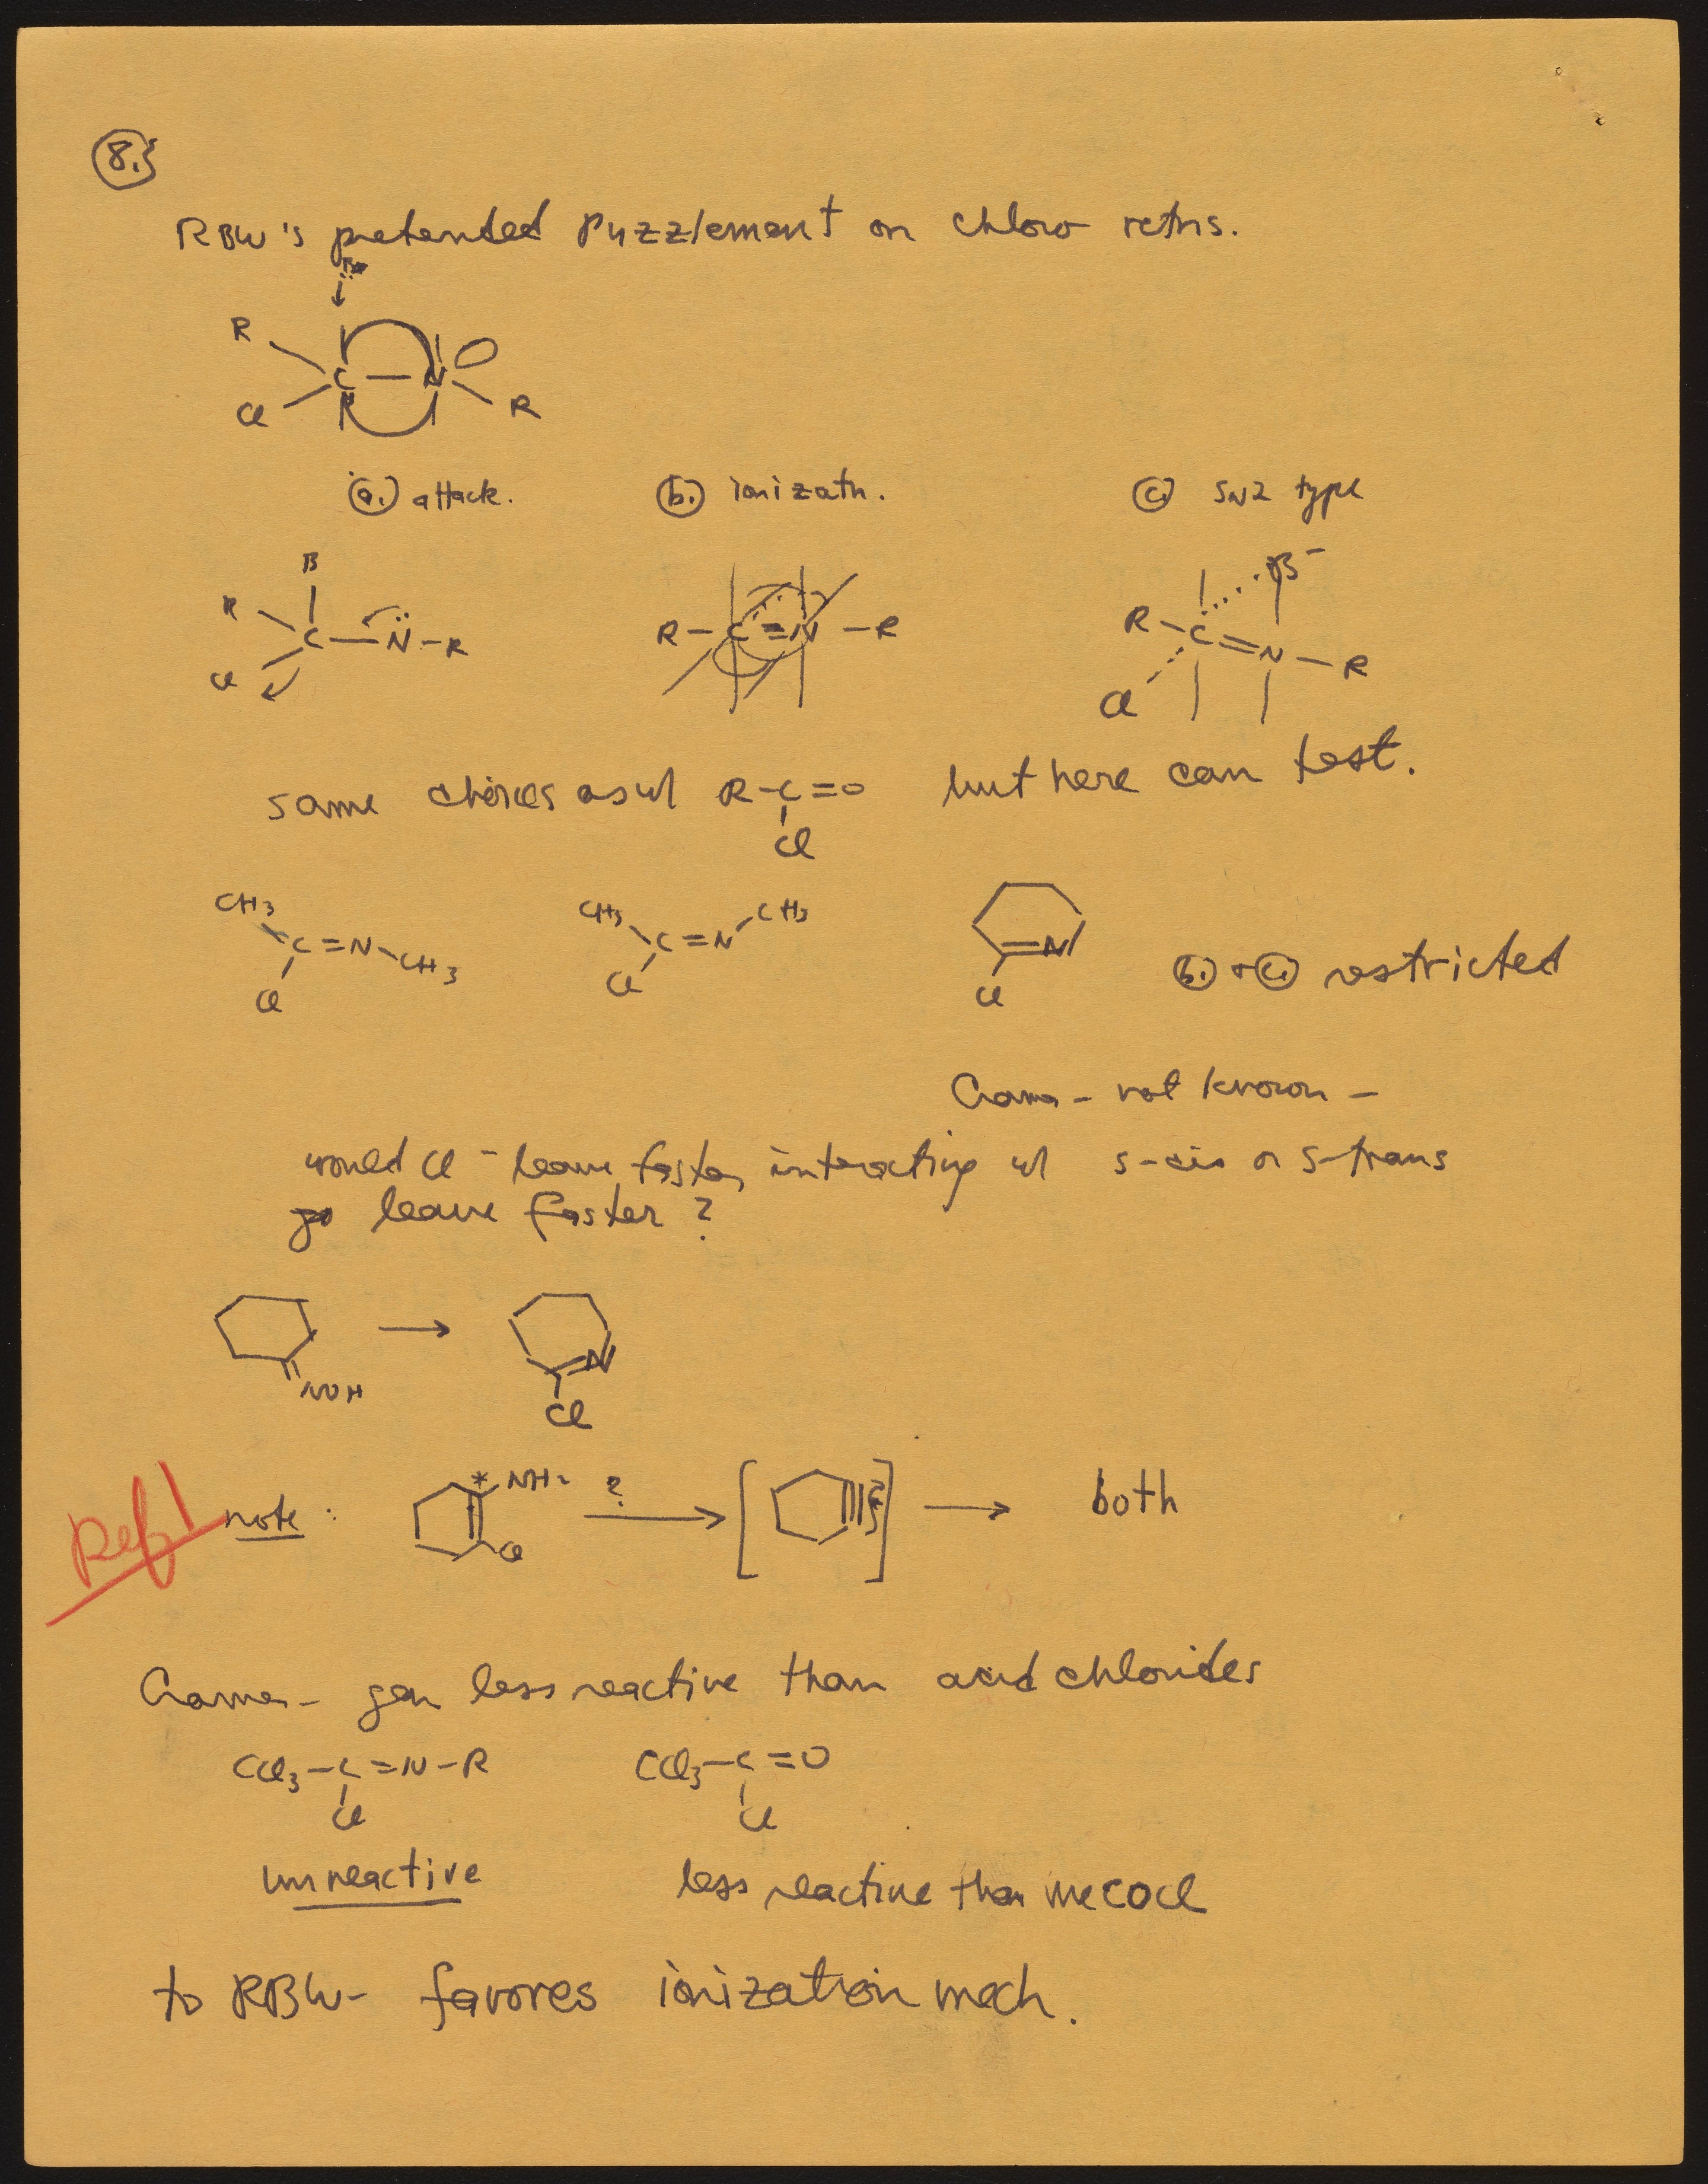 8.}
RBW's pretended puzzlement on chloro rctns.
B:
R
C — N
Cl R
(a.) attack. (b.) ionizatn. (c) SN2 type
B B⁻
R C — N̈ — R R — C ≡ N — R R — C = N — R
Cl Cl
same choices as w/ R-C=O but here can test.
Cl
CH3 C=N CH3 CH3 C=N CH3 N
Cl Cl Cl (b.) + (c.) restricted
Cramer - not known -
would Cl⁻ leave faster, interacting w/ s-cis or s-trans
go leave faster?
NOH → N
Cl
Ref! note: * NH2 ? → [ ] → both
Cl
Cramer - gen less reactive than acid chlorides
CCl3-C=N-R CCl3-C=O
Cl Cl
unreactive less reactive than MeCOCl
to RBW- favores ionization mech.